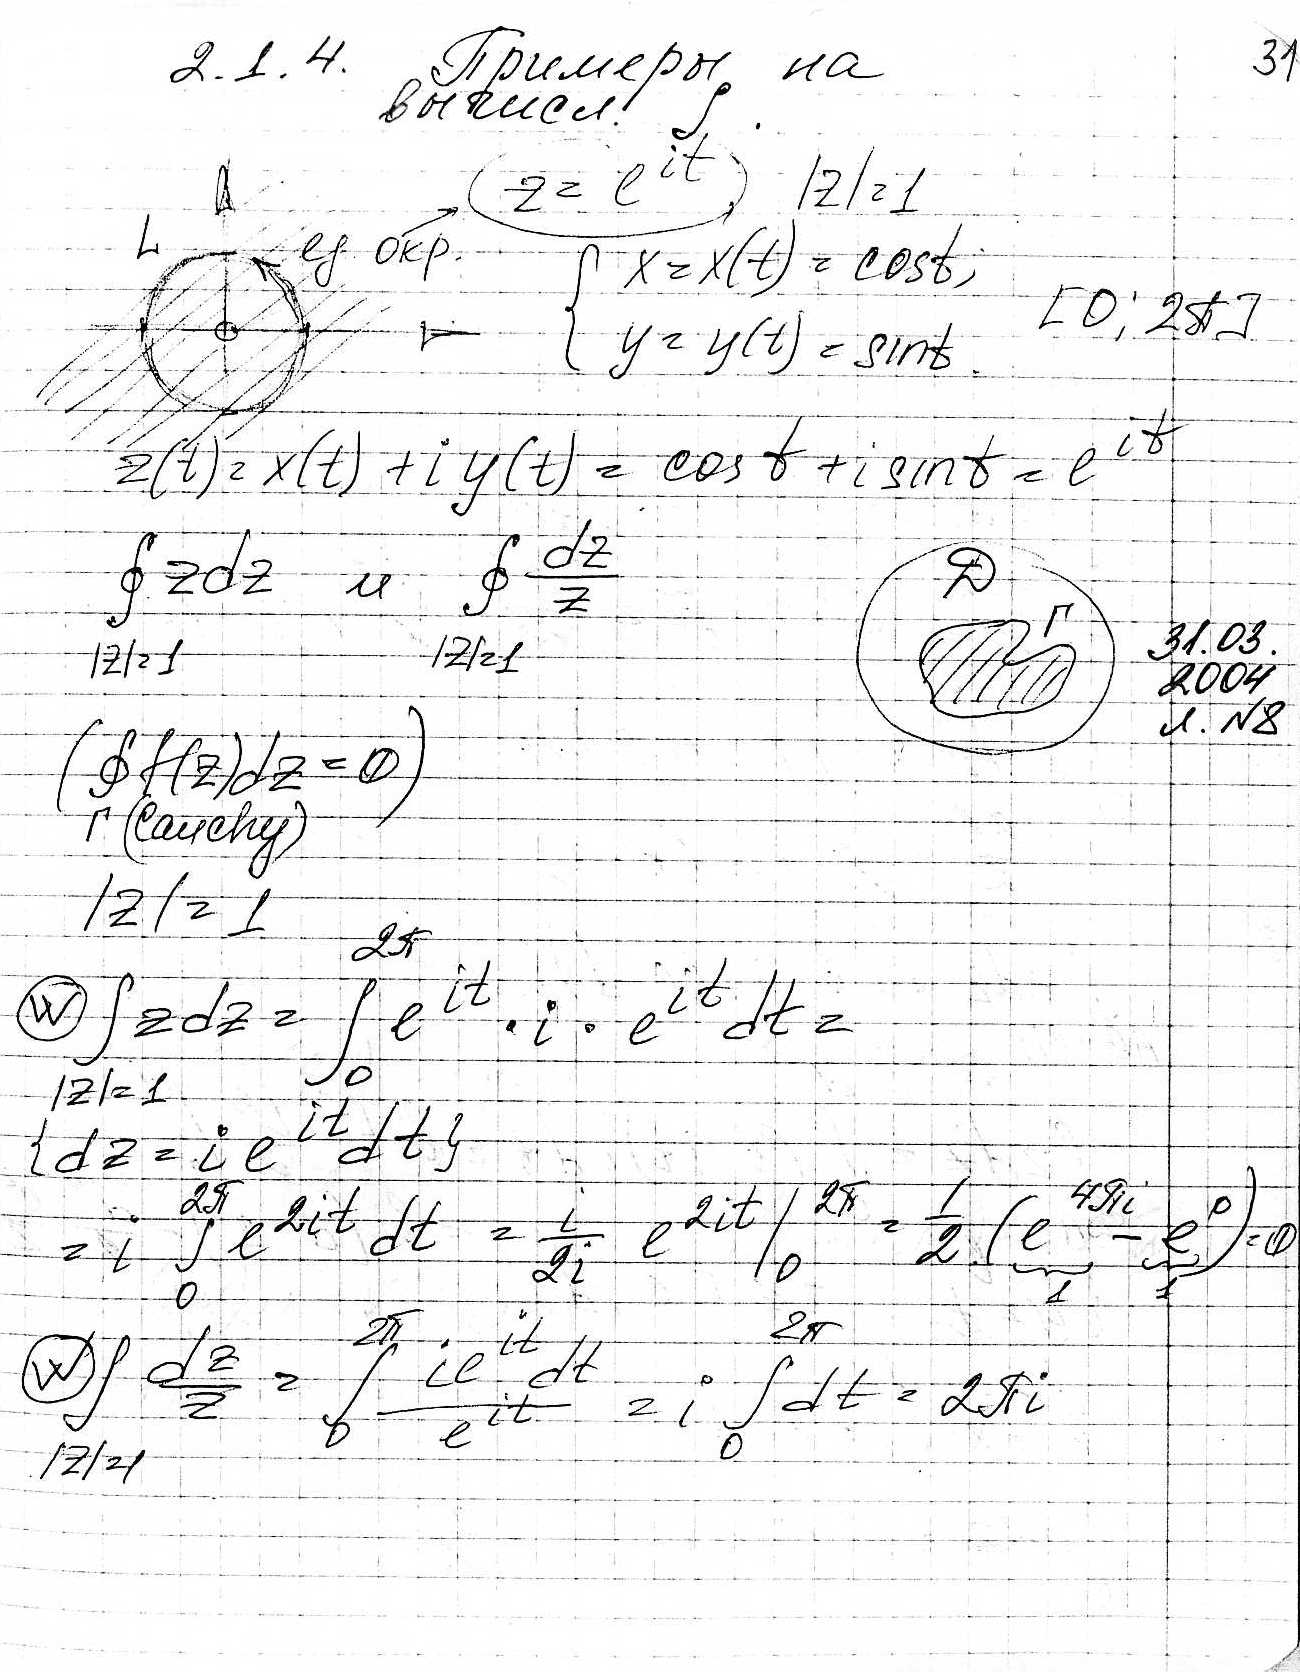 2.1.4. Примеры на
31
вычисл. ∫.
(z = e^{it}) |z| = 1
L
ед окр.
{ x = x(t) = cost;
y = y(t) = sint.
[0; 2π]
z(t) = x(t) + iy(t) = cost + i sint = e^{it}
∮ zdz и ∮ dz/z
|z|=1 |z|=1
D
Г
31.03.
2004
л. N8
(∮ f(z)dz = 0)
Г (Cauchy)
|z| = 1
Ⓦ ∫_{|z|=1} zdz = ∫_0^{2π} e^{it} · i · e^{it} dt =
{dz = i e^{it} dt}
= i ∫_0^{2π} e^{2it} dt = i/2i e^{2it} |_0^{2π} = 1/2 (e^{4πi} - e^0) = 0
1 1
Ⓦ ∫_{|z|=1} dz/z = ∫_0^{2π} ie^{it}dt / e^{it} = i ∫_0^{2π} dt = 2πi